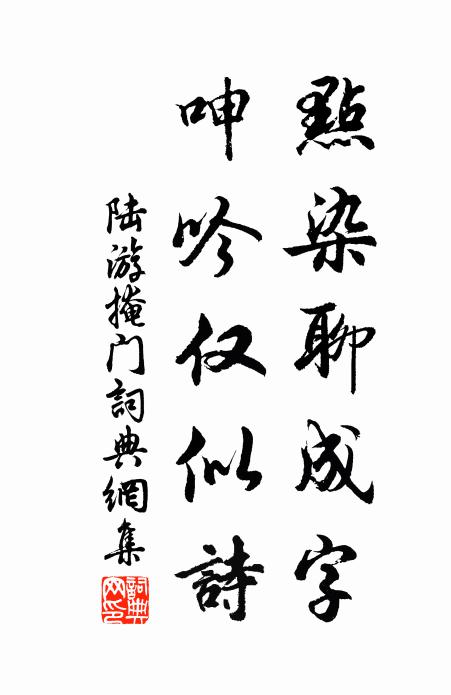 點染聊成字
呻吟仅似詩
陆游掩门詞典網集
詞典网印